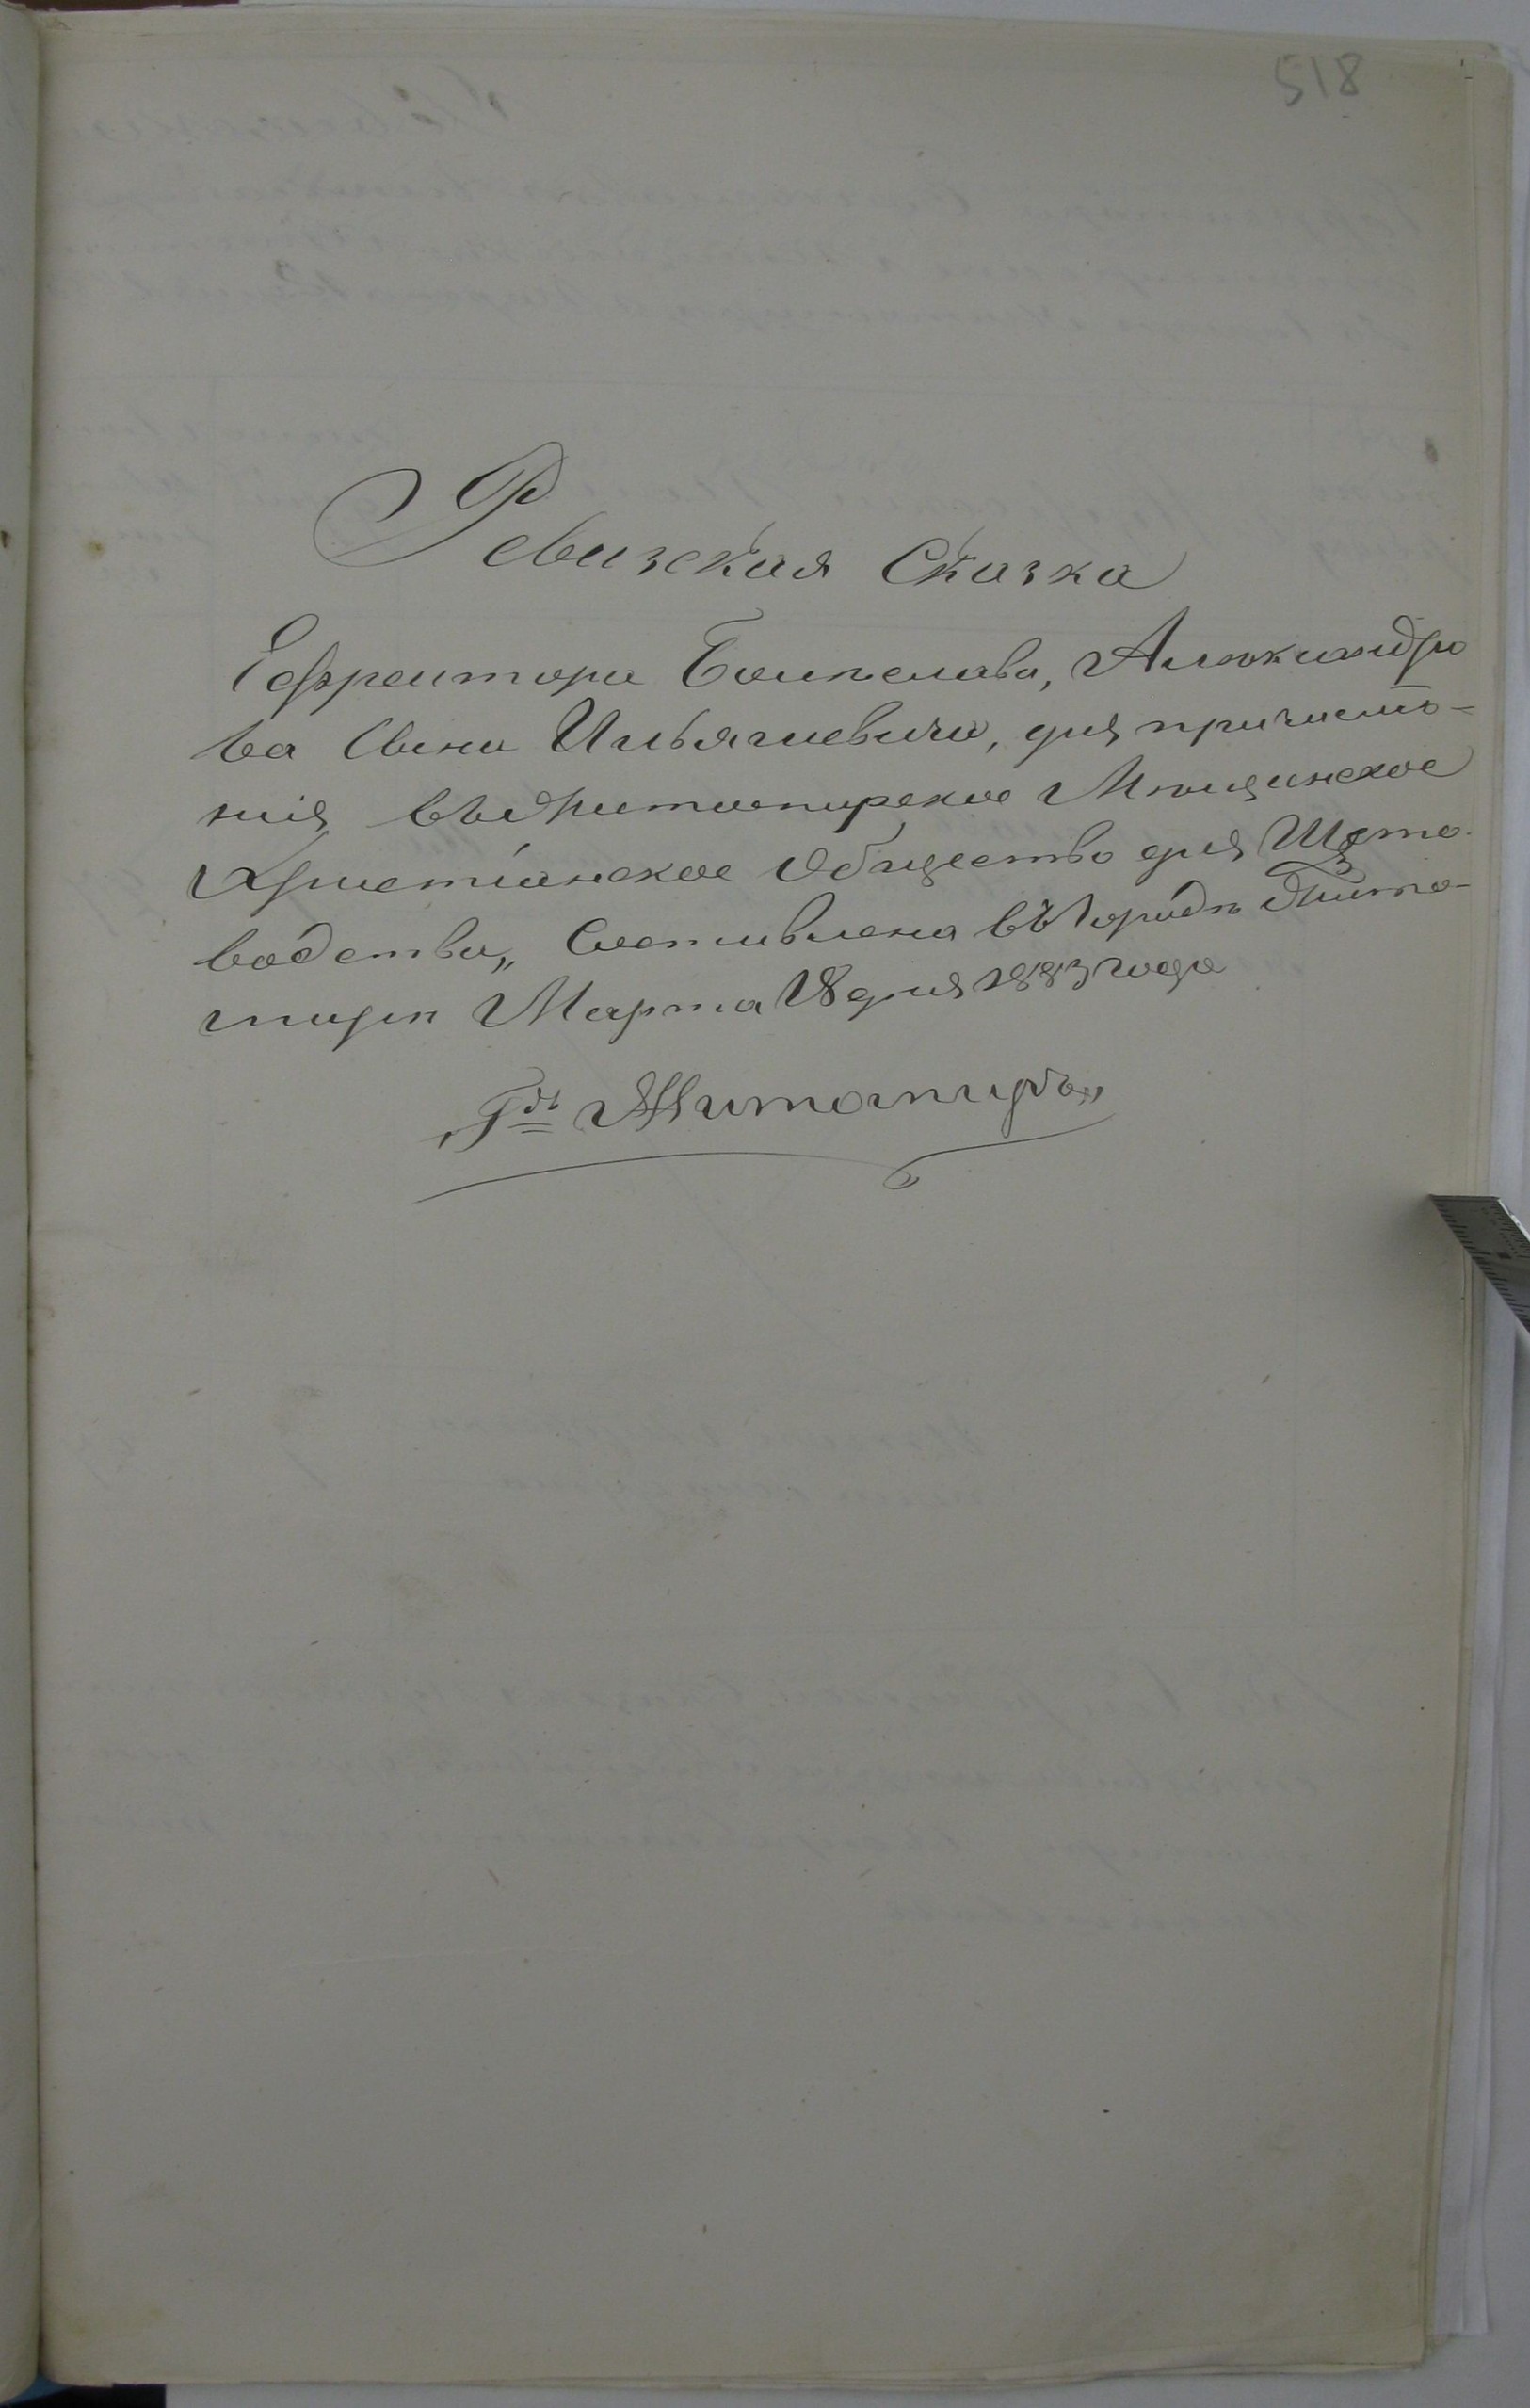 518
Ревизская Сказка
Ефрейтора Болеслава, Александро
ва Сына Ильяшевича, для причисле-
нія въ Житомирское Мещанское
Христіанское Общество для Щето
водства„ Составлена въ Городѣ Жито-
мирѣ Марта 18 дня 1883 года
„Гдъ Житомиръ„